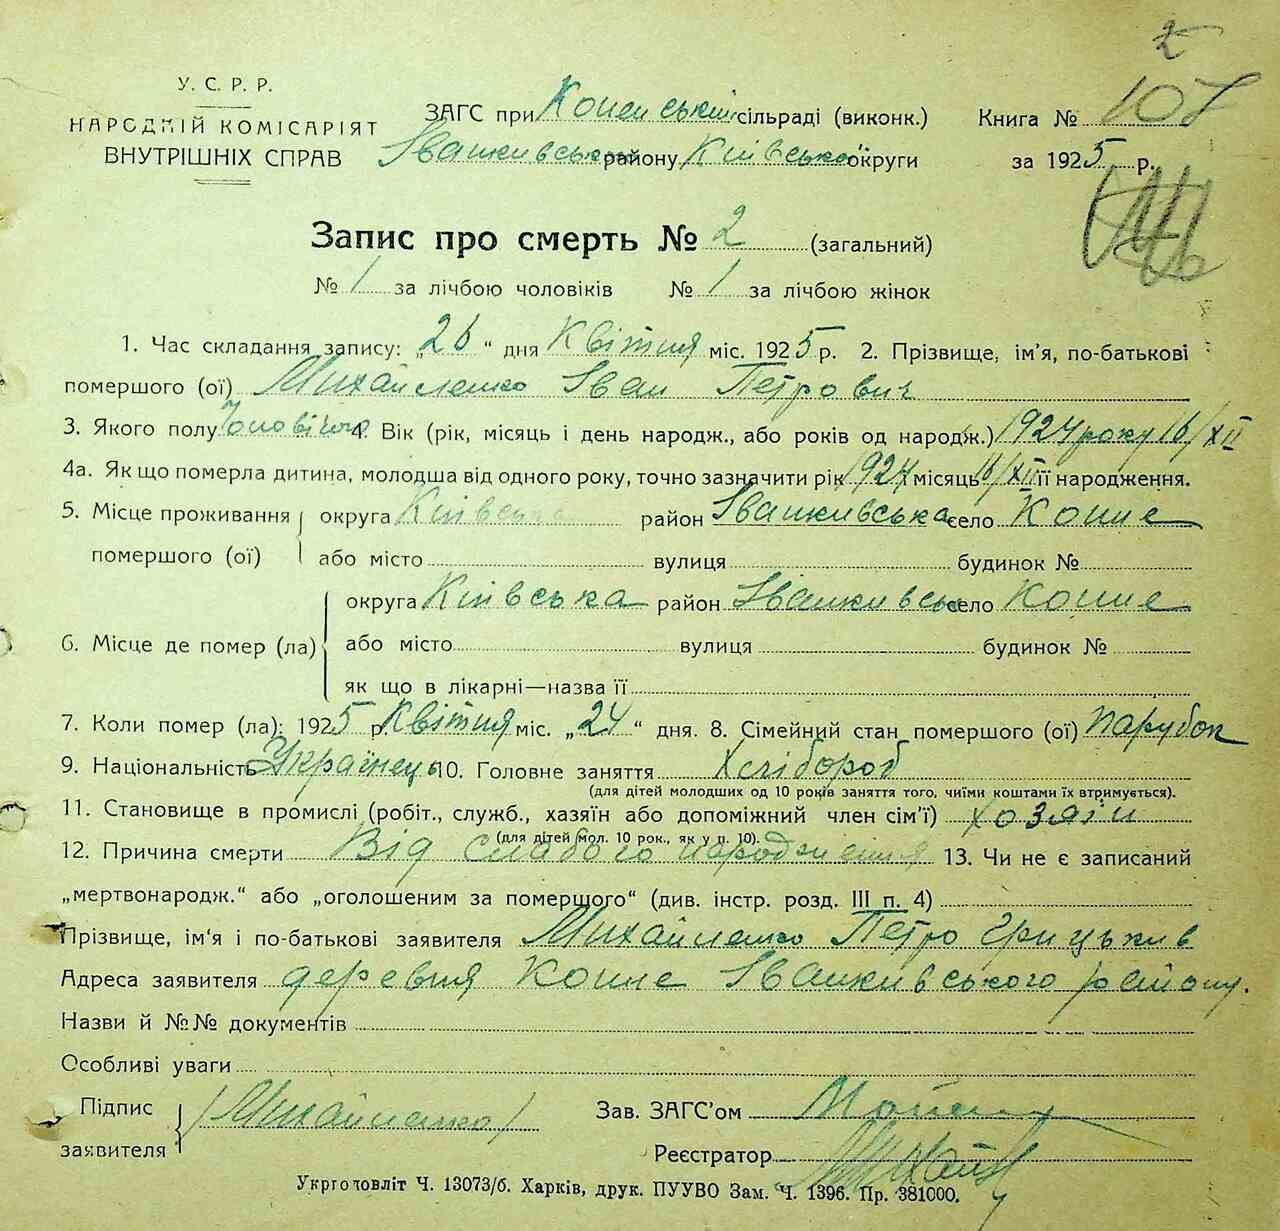 2
У. С. Р. Р.
НАРОДНІЙ КОМІСАРІЯТ
ВНУТРІШНІХ СПРАВ
ЗАГС при Коненській сільраді (виконк.)
Іванківського району Київської округи
Книга № 107
за 1925 р.
Запис про смерть № 2 (загальний)
№ 1 за лічбою чоловіків № 1 за лічбою жінок
1. Час складання запису: „26“ дня Квітня міс. 1925 р. 2. Прізвище, ім'я, по-батькові
помершого (ої) Михайленко Іван Петрович
3. Якого полу Чоловічого 4. Вік (рік, місяць і день народж., або років од народж.) 1924 року 16/XII
4а. Як що померла дитина, молодша від одного року, точно зазначити рік 1924 місяць 16/XII її народження.
5. Місце проживання помершого (ої) округа Київська район Іванківська село Копше
або місто вулиця будинок №
6. Місце де помер (ла) округа Київська район Іванківська село Копше
або місто вулиця будинок №
як що в лікарні—назва її
7. Коли помер (ла): 1925 р. Квітня міс. „24“ дня. 8. Сімейний стан помершого (ої) парубок
9. Національність Українець 10. Головне заняття Хлібороб
(для дітей молодших од 10 років заняття того, чиїми коштами їх втримується).
11. Становище в промислі (робіт., служб., хазяїн або допоміжний член сім'ї) хозяїн
(для дітей мол. 10 рок., як у п. 10).
12. Причина смерти Від слабого народження 13. Чи не є записаний
„мертвонародж.“ або „оголошеним за помершого“ (див. інстр. розд. III п. 4)
Прізвище, ім'я і по-батькові заявителя Михайленко Петро Грицьків
Адреса заявителя деревня Копше Іванківського району.
Назви й №№ документів
Особливі уваги
Підпис заявителя /Михайленко/
Зав. ЗАГС'ом
Реєстратор
Укрголовліт Ч. 13073/б. Харків, друк. ПУУВО Зам. Ч. 1396. Пр. 381000.